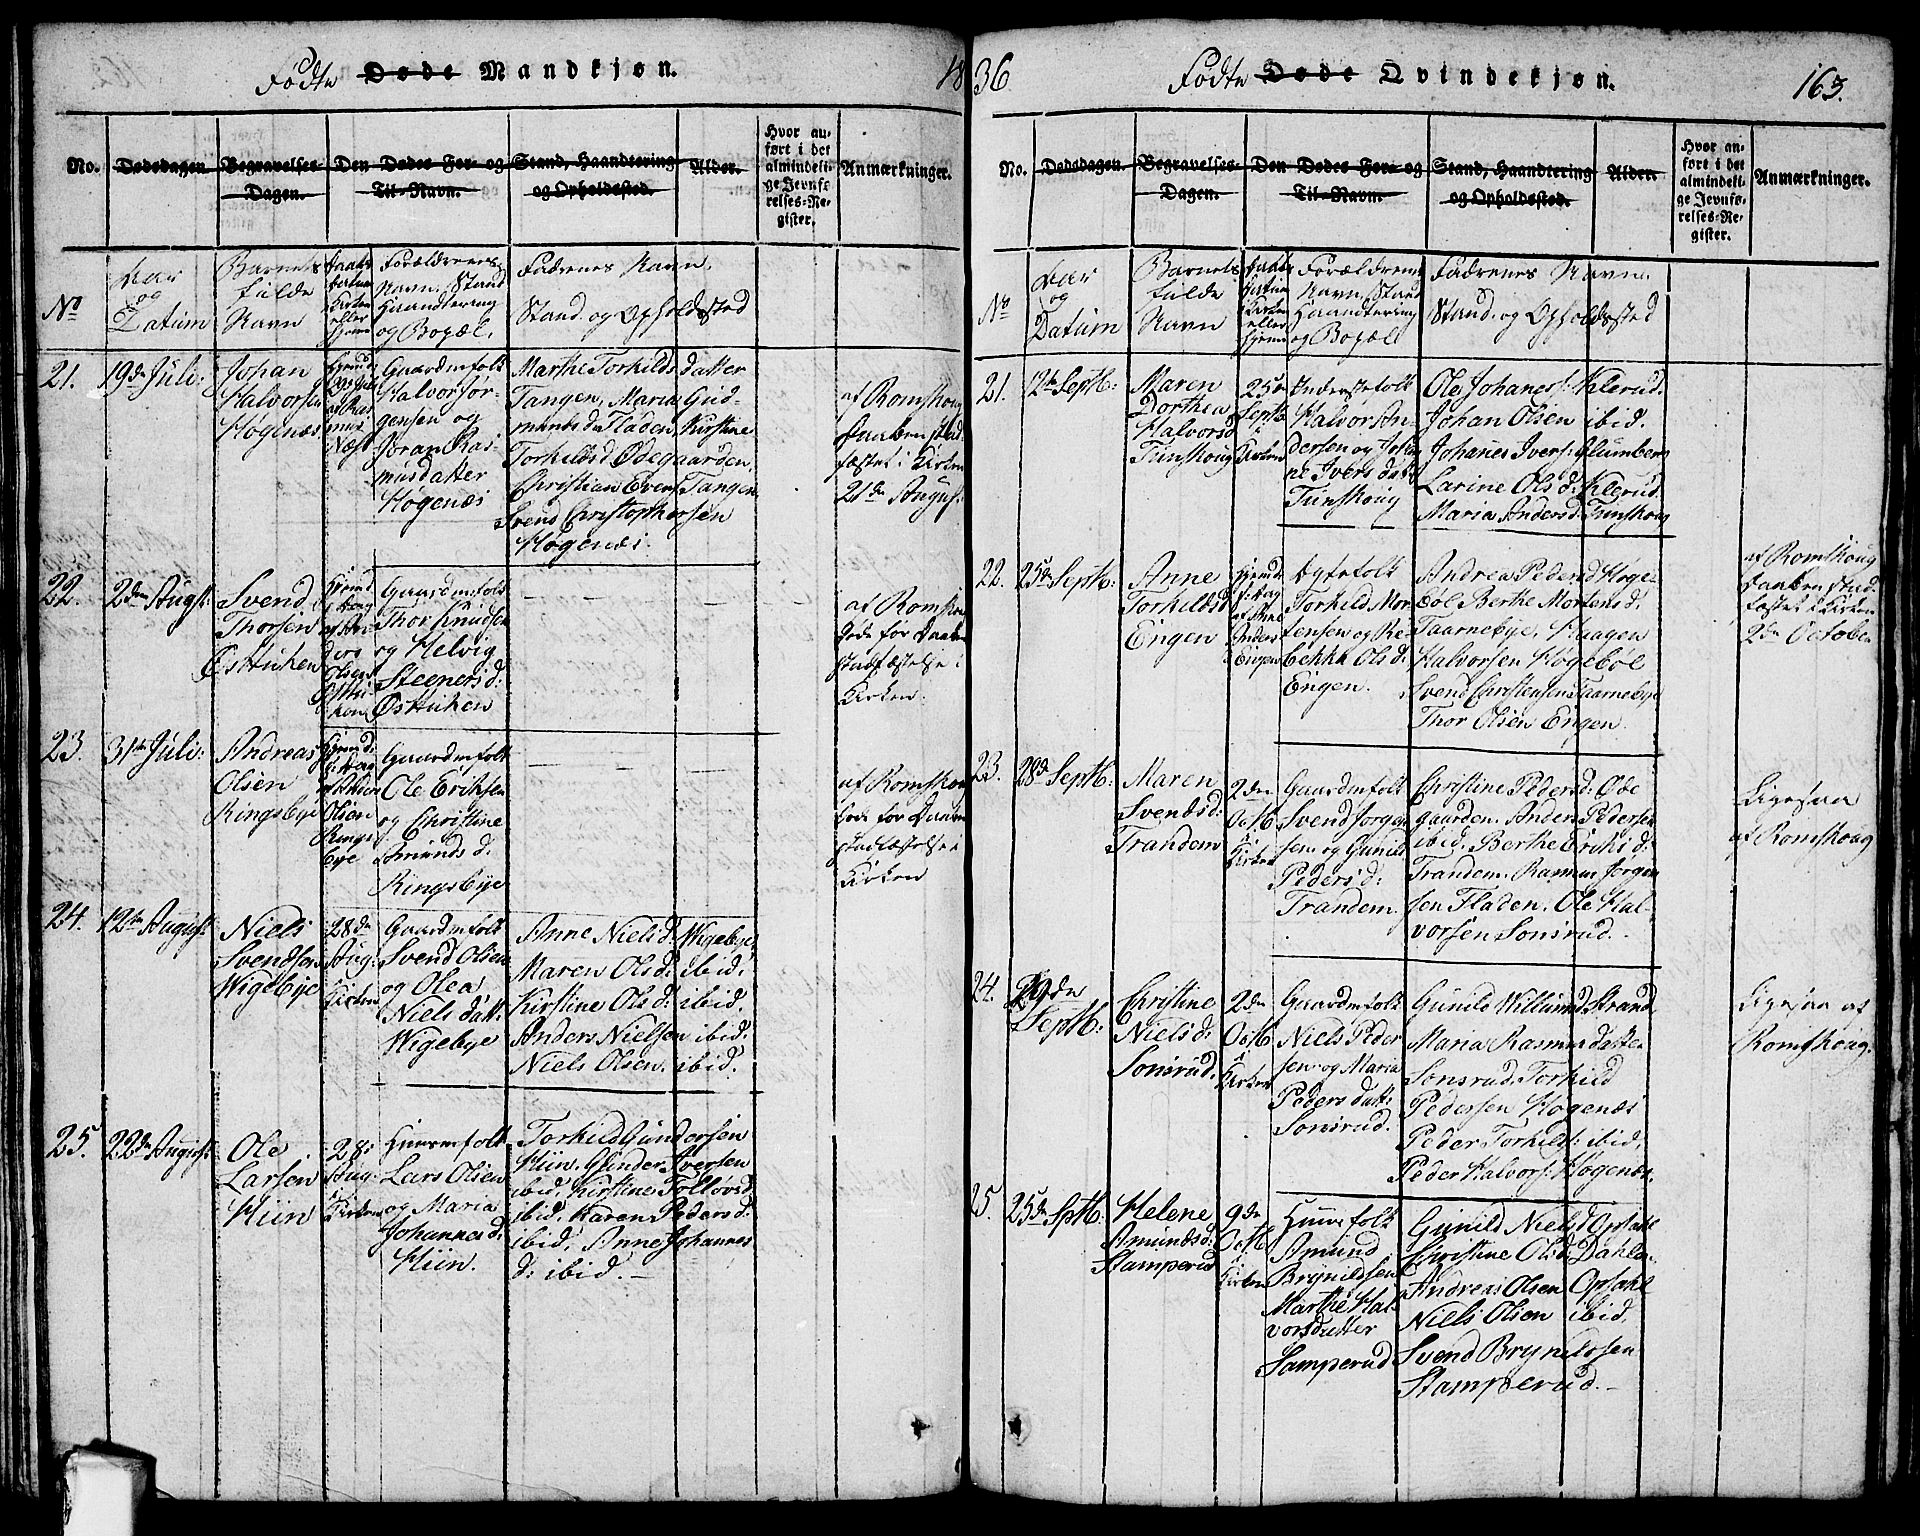 Födte Døde Mandkjøn.
18
No.
Dødsdagen
Begravelses-
Dagen.
Den Dødes For- og
Til-Navn.
Stand, Haandtering
og Opholdssted.
Alder.
Hvor an-
ført i det
almindeli-
ge Jevnfø-
relses-Re-
gister.
Anmærkninger.
No
Aar
og
Datum
Barnets
fulde
Navn
Daabs
Datum
Kirken
eller
hjeme
Forældrenes
Navn, Stand
Haandtering
og Bopæl.
Fadrenes Navn.
Stand og Opholdssted
21.
19de Juli:
Johan
Halvorsen
Högenæs
Gaardmfolk
Halvor Jör-
gensen og
Joran Ras-
musdatter
Högenæs
Marthe Torkilds datter
Tangen, Maria Gud-
mundsd. Fladen, Kirstine
Torkildsd. Ödegaarden,
Christian Evens. Tangen
Svend Christophersen
Högenæs.
af Romskoug
Daaben stad-
fæstet i Kirken
21de August
22.
2den August:
Svend
Thorsen
Östtuken
Gaardmfolk
Thor Knudsen
og Helvig
Steenersd:
Østtuken
af Romskoug
døde før Daabens
stadfæstelse i
Kirken.
23.
31te Juli:
Andreas
Olsen
Ringsbye
Gaardmfolk
Ole Eriksen
og Christine
Amundsd:
Ringsbye
af Romskoug
døde før Daabens
stadfæstelse i
Kirken
24.
12te August
Niels
Svendsen
Wigebye
28de
Aug:
i
Kirken
Gaardmfolk
Svend Olsen
og Olea
Niels datt:
Wigebye
Anne Nielsd: Wigebye
Maren Olsd: ibid,
Kirstine Olsd: ibid.
Anders Nielsen ibid:
Niels Olsen. ibid.
25.
22de August
Ole
Larsen
Hiin
28:
Aug:
i
Kirken
Huusmfolk
Lars Olsen
og Maria
Johannesd:
Hiin.
Torkild Gundersen
Hiin, Gunder Iversen
ibid, Kirstine Tollövsd
ibid, Karen Pedersd:
ibid, Anne Johannes
d: ibid.
36
Födte Døde Qvindekjøn.
163.
No.
Dødsdagen.
Begravelses-
Dagen.
Den Dødes For- og
Til-Navn.
Stand, Haandtering
og Opholdssted.
Alder.
Hvor an-
ført i det
almindeli-
ge Jevnfø-
relses-Re-
gister.
Anmærkninger.
No
Aar
og
Datum
Barnets
fulde
Navn
Daabs
Datum
Kirken
eller
hjeme
Forældrenes
Navn, Stand
Haandtering
og Bopæl
Fadrenes Navn.
Stand og Opholdssted
21.
12te Septb:
Maren
Dorthea
Halvorsd:
Tunskoug
25de
Septb
i
Kirken
Inderstfolk
Halvor An-
dersen og Johan
ne Ivers datt:
Tunskoug
Ole Johanes: Klerud.
Johan Olsen ibid.
Johanes Ivers: Slumberg
Larine Olsd: Klerud.
Maria Andersd: Tunskoug
22.
25de Septb:
Anne
Torkildsd.
Engen
Ægtefolk
Torkild Mor-
tensen og Re-
bekka Olsd:
Engen.
Andrea Pedersd Höge-
böl Berthe Mortensd:
Taarnebye, Haagen
Halvorsen Högeböl
Svend Christensen Taarnebye
Thor Olsen Engen.
af Romskoug
Daaben stad-
fæstet i Kirken
2de October
23.
28de Septb:
Maren
Svendsd:
Trandem
2den
Octb
i
Kirken
Gaardmfolk
Svend Jörgen
sen og Gunild
Pedersd:
Trandem.
Christine Pedersd: Öde
gaarden. Anders Pedersen
ibid. Berthe Eriksd:
Trandem. Rasmus Jörgen
sen Fladen. Ole Hal-
vorsen Sonsrud.
Ligesaa
af Romskoug
24.
29de
Septb:
Christine
Nielsd:
Sonsrud.
2den
Octb
i
Kirken
Gaardmfolk
Niels Peder
sen og Maria
Peders datt:
Sonsrud.
Maria Rasmusdatter
Sonsrud. Torkild
Pedersen Högenæs
Peder Torkilds: ibid,
Peder Halvors: Högenæs.
Ligesaa af
Romskoug.
25.
25de Septb:
Helene
Amundsd:
Stamperud
9de
Octb
i
Kirken
Huusmfolk
Amund
Brynildsen
Marthe Hal-
vorsdatter
Samperud
Gunild Nielsd Opsahl
Christine Olsd: Dahlen
Andreas Olsen Opsahl
Niels Olsen ibid,
Svend Brynildsen
Stamperud.